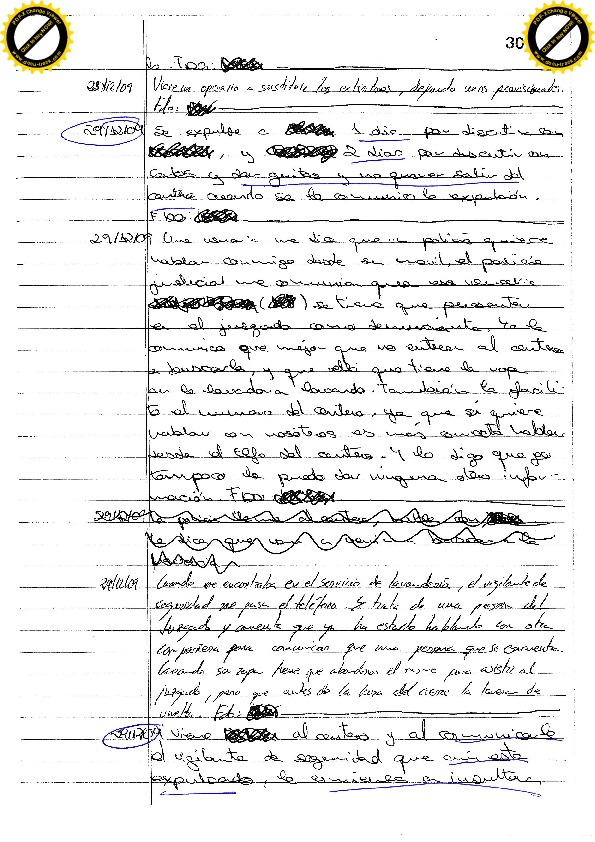 30
Fdo:
29/12/09 Viene un operario a sustituir los extintores, dejando unos provisionales.
Fdo:
29/12/09 Se expulsa a 1 día por discutir con
, y 2 días por discutir con
y dar gritos y no querer salir del
centro cuando se le comunica la expulsión.
Fdo:
29/12/09 Una usuaria me dice que un policía quiere
hablar conmigo desde su movil, el policía
judicial me comunica que esa usuaria
( ) se tiene que presentar
en el juzgado como denunciante, Yo le
comunico que mejor que no entren al centro
a buscarla, y que que tiene la ropa
en la lavadora lavando. También le facili
to el numero del centro, ya que si quiere
hablar con nosotros es más hablar
desde el tlfo del centro. Y le digo que yo
tampoco le puedo dar ninguna otra infor-
mación Fdo
29/12/09 La policia llama al centro, habla con
le dice que van a
29/12/09 Cuando me encontraba en el servicio de lavandería, el vigilante de
seguridad me pasa el teléfono. Se trata de una persona del
Juzgado y comenta que ya ha estado hablando con otra
compañera para comunicar que una persona que se encuentra
lavando su ropa tiene que abandonar el mismo para asistir al
juzgado, pero que antes de la hora del cierre la traerán de
vuelta. Fdo:
29/12/09 Viene al centro y al comunicarle
el vigilante de seguridad que aún está
expulsado, le comienza a insultar,